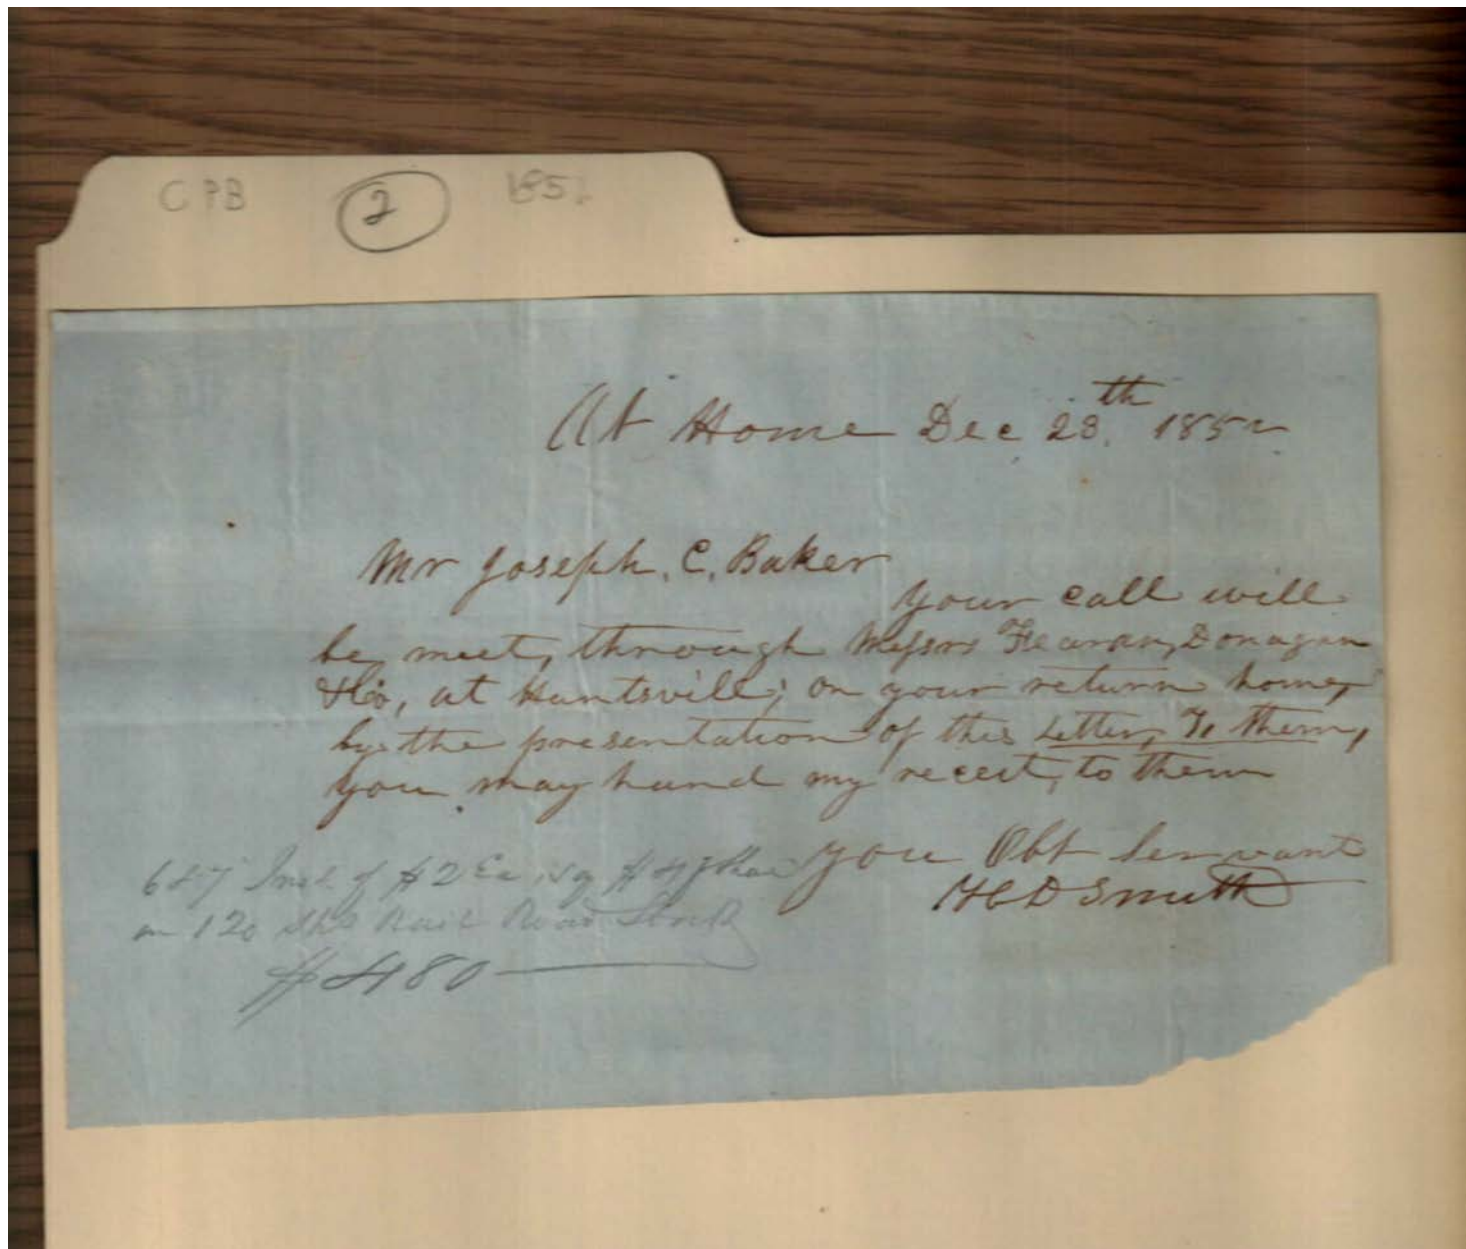 CPB 2 185
At Home Dec 28th 1852
Mr Joseph. C. Baker
Your call will
be meet, through Messrs Fearan, Donagan
& Co, at Huntsvill; on your return home,
by the presentation of this Letter, To them,
you may hand my receit, to them
you Obt Servant
H C D Smith
6 & 7 Inst of $2 Ea is $4
on 120 Shs Rail Road Stock
$480